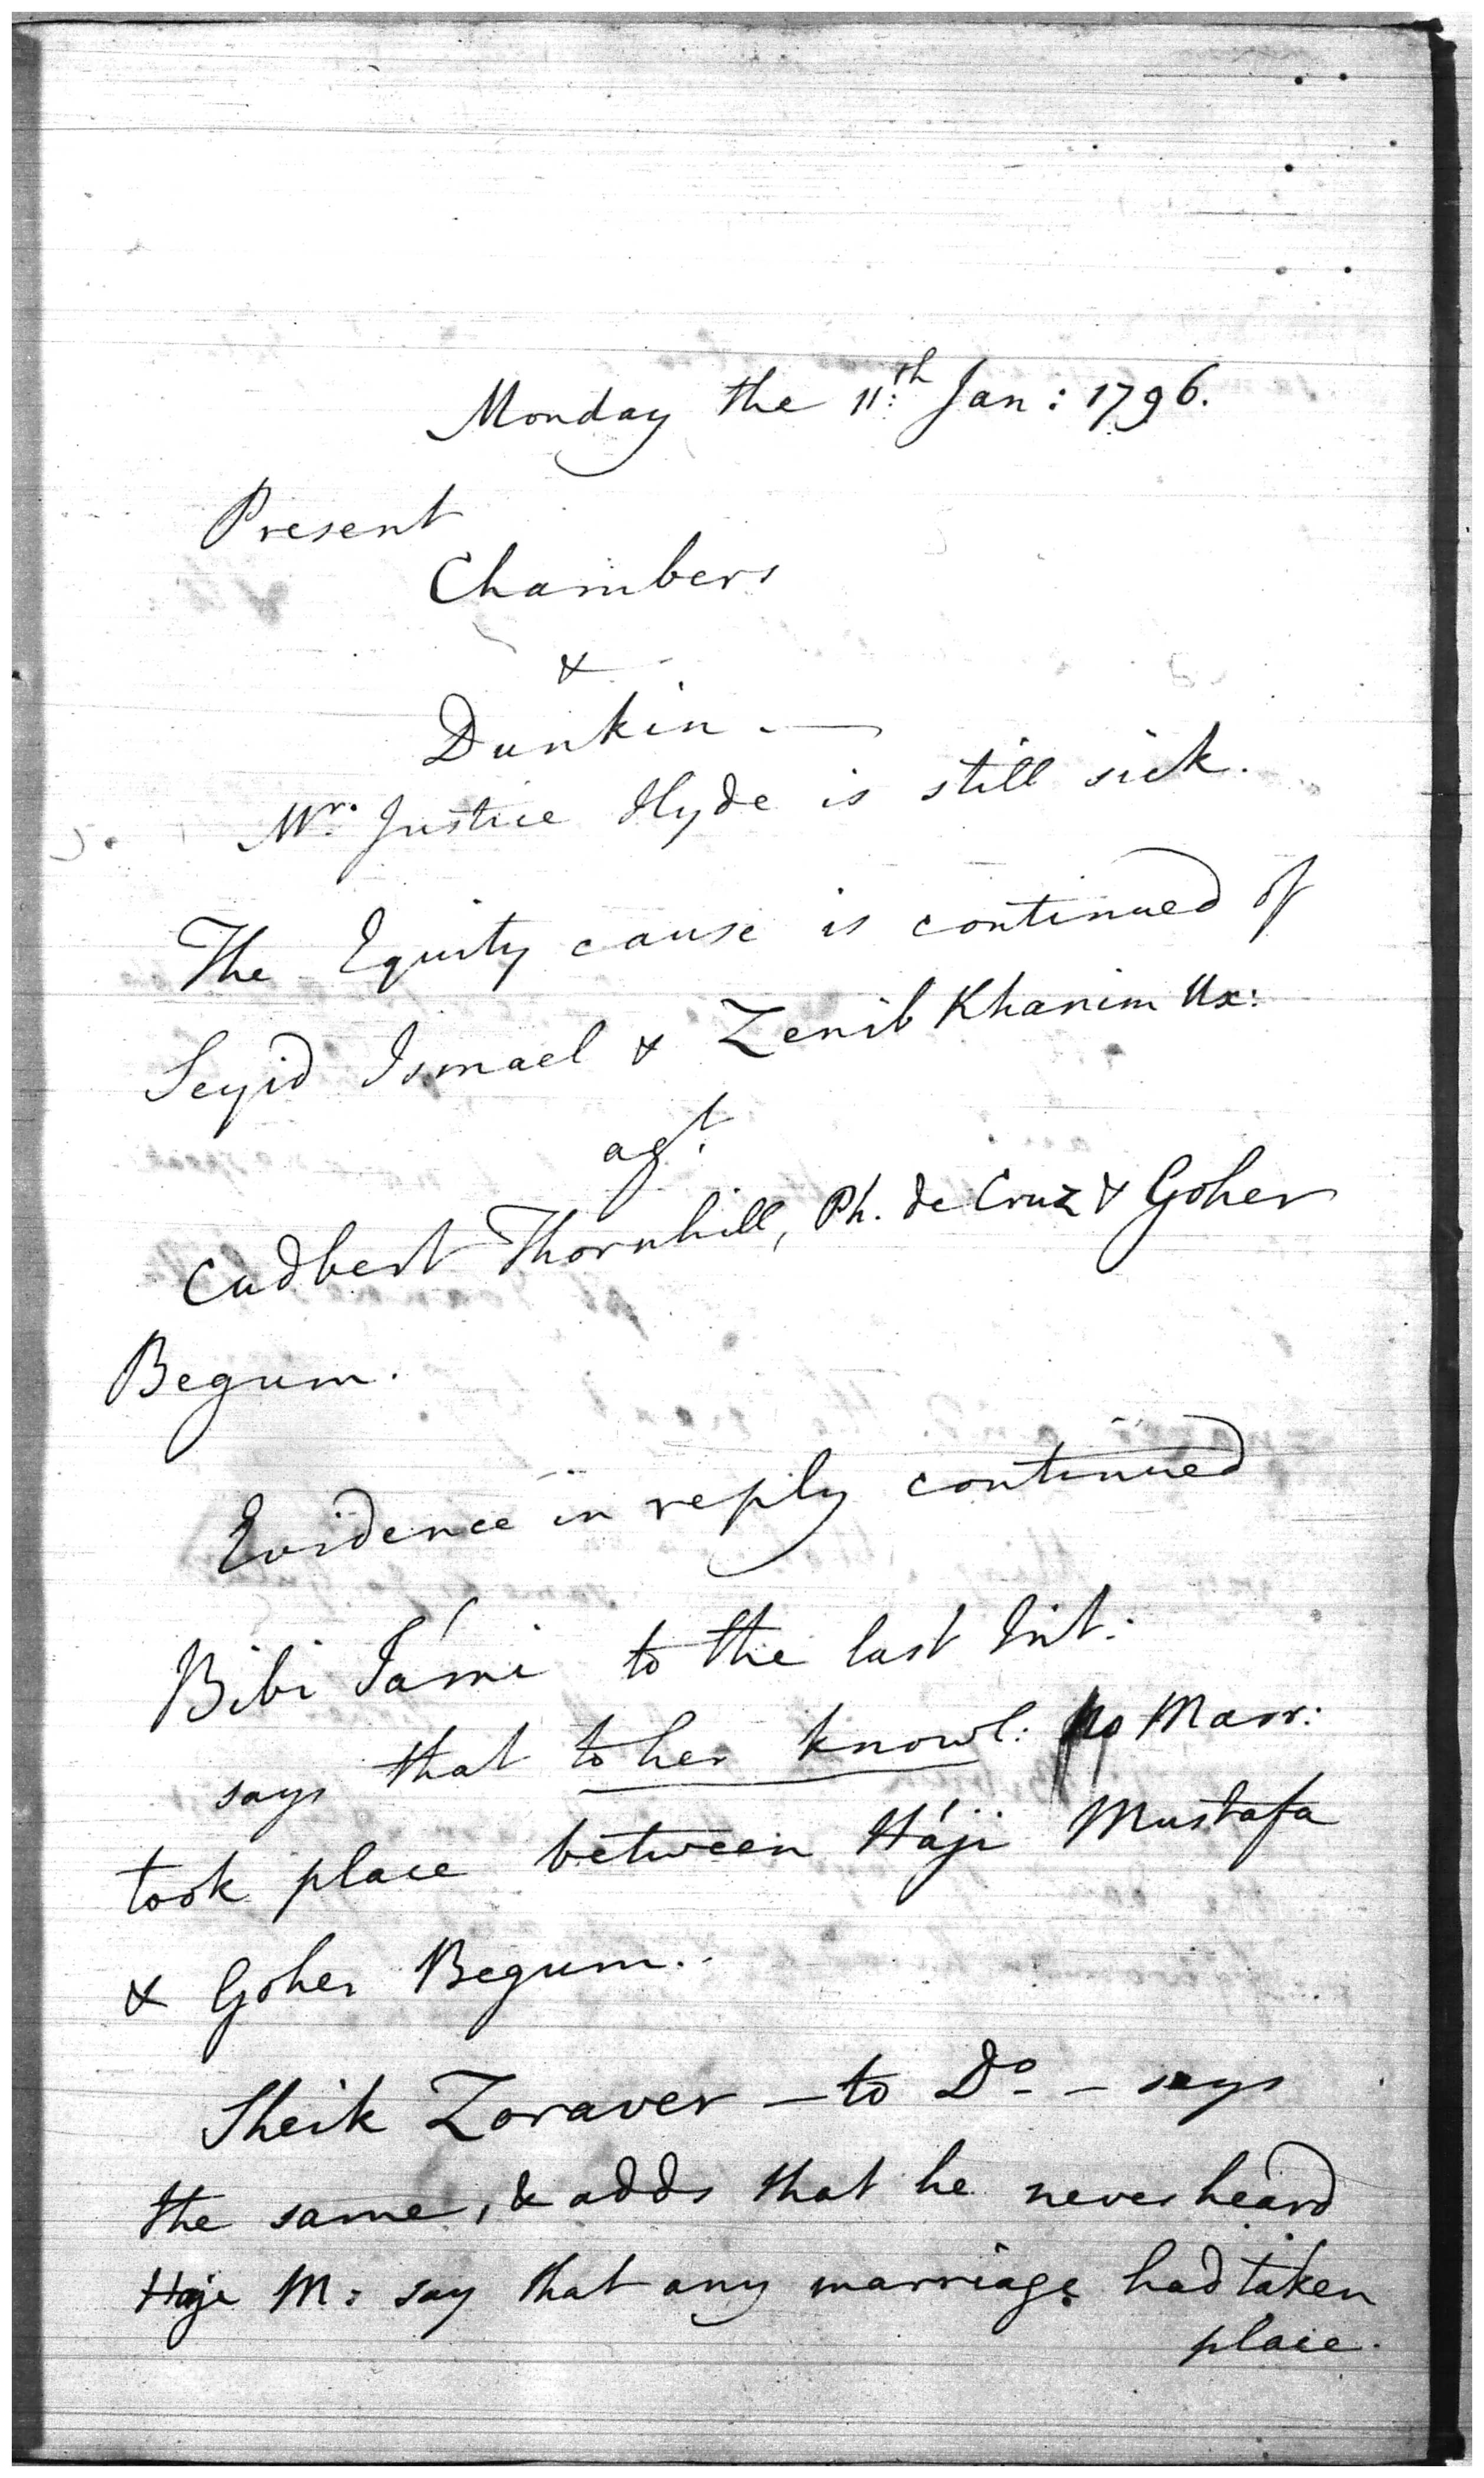 Monday the 11:th Jan: 1796.
Present
Chambers
&
Dunkin. —
Mr. Justice Hyde is still sick.
The Equity cause is continued of
Seyid Ismael & Zenib Khanim Ux:
agt.
Cudbert Thornhill, Ph. de Cruz & Goher
Begum.
Evidence in reply continued
Bibi Jámi to the last Int:
says that to her knowl: no Marr:
took place between Háji Mustafa
& Goher Begum.
Sheik Zoraver — to Do. — says
the same, & adds that he never heard
Haji M: say that any marriage had taken
place.